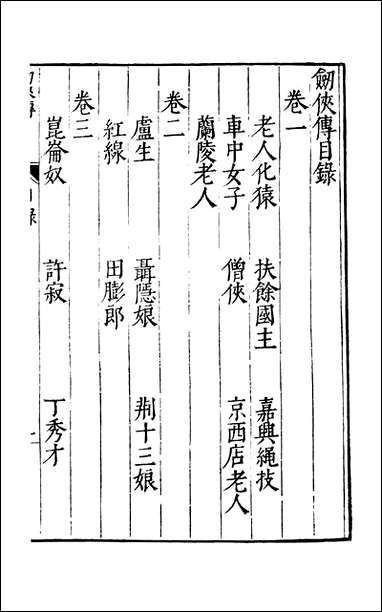 劒俠傳目錄
卷一
老人化猿 扶餘國主 嘉興繩技
車中女子 僧俠 京西店老人
蘭陵老人
卷二
盧生 聶隱娘 荆十三娘
紅線 田膨郎
卷三
崑崙奴 許寂 丁秀才
目錄